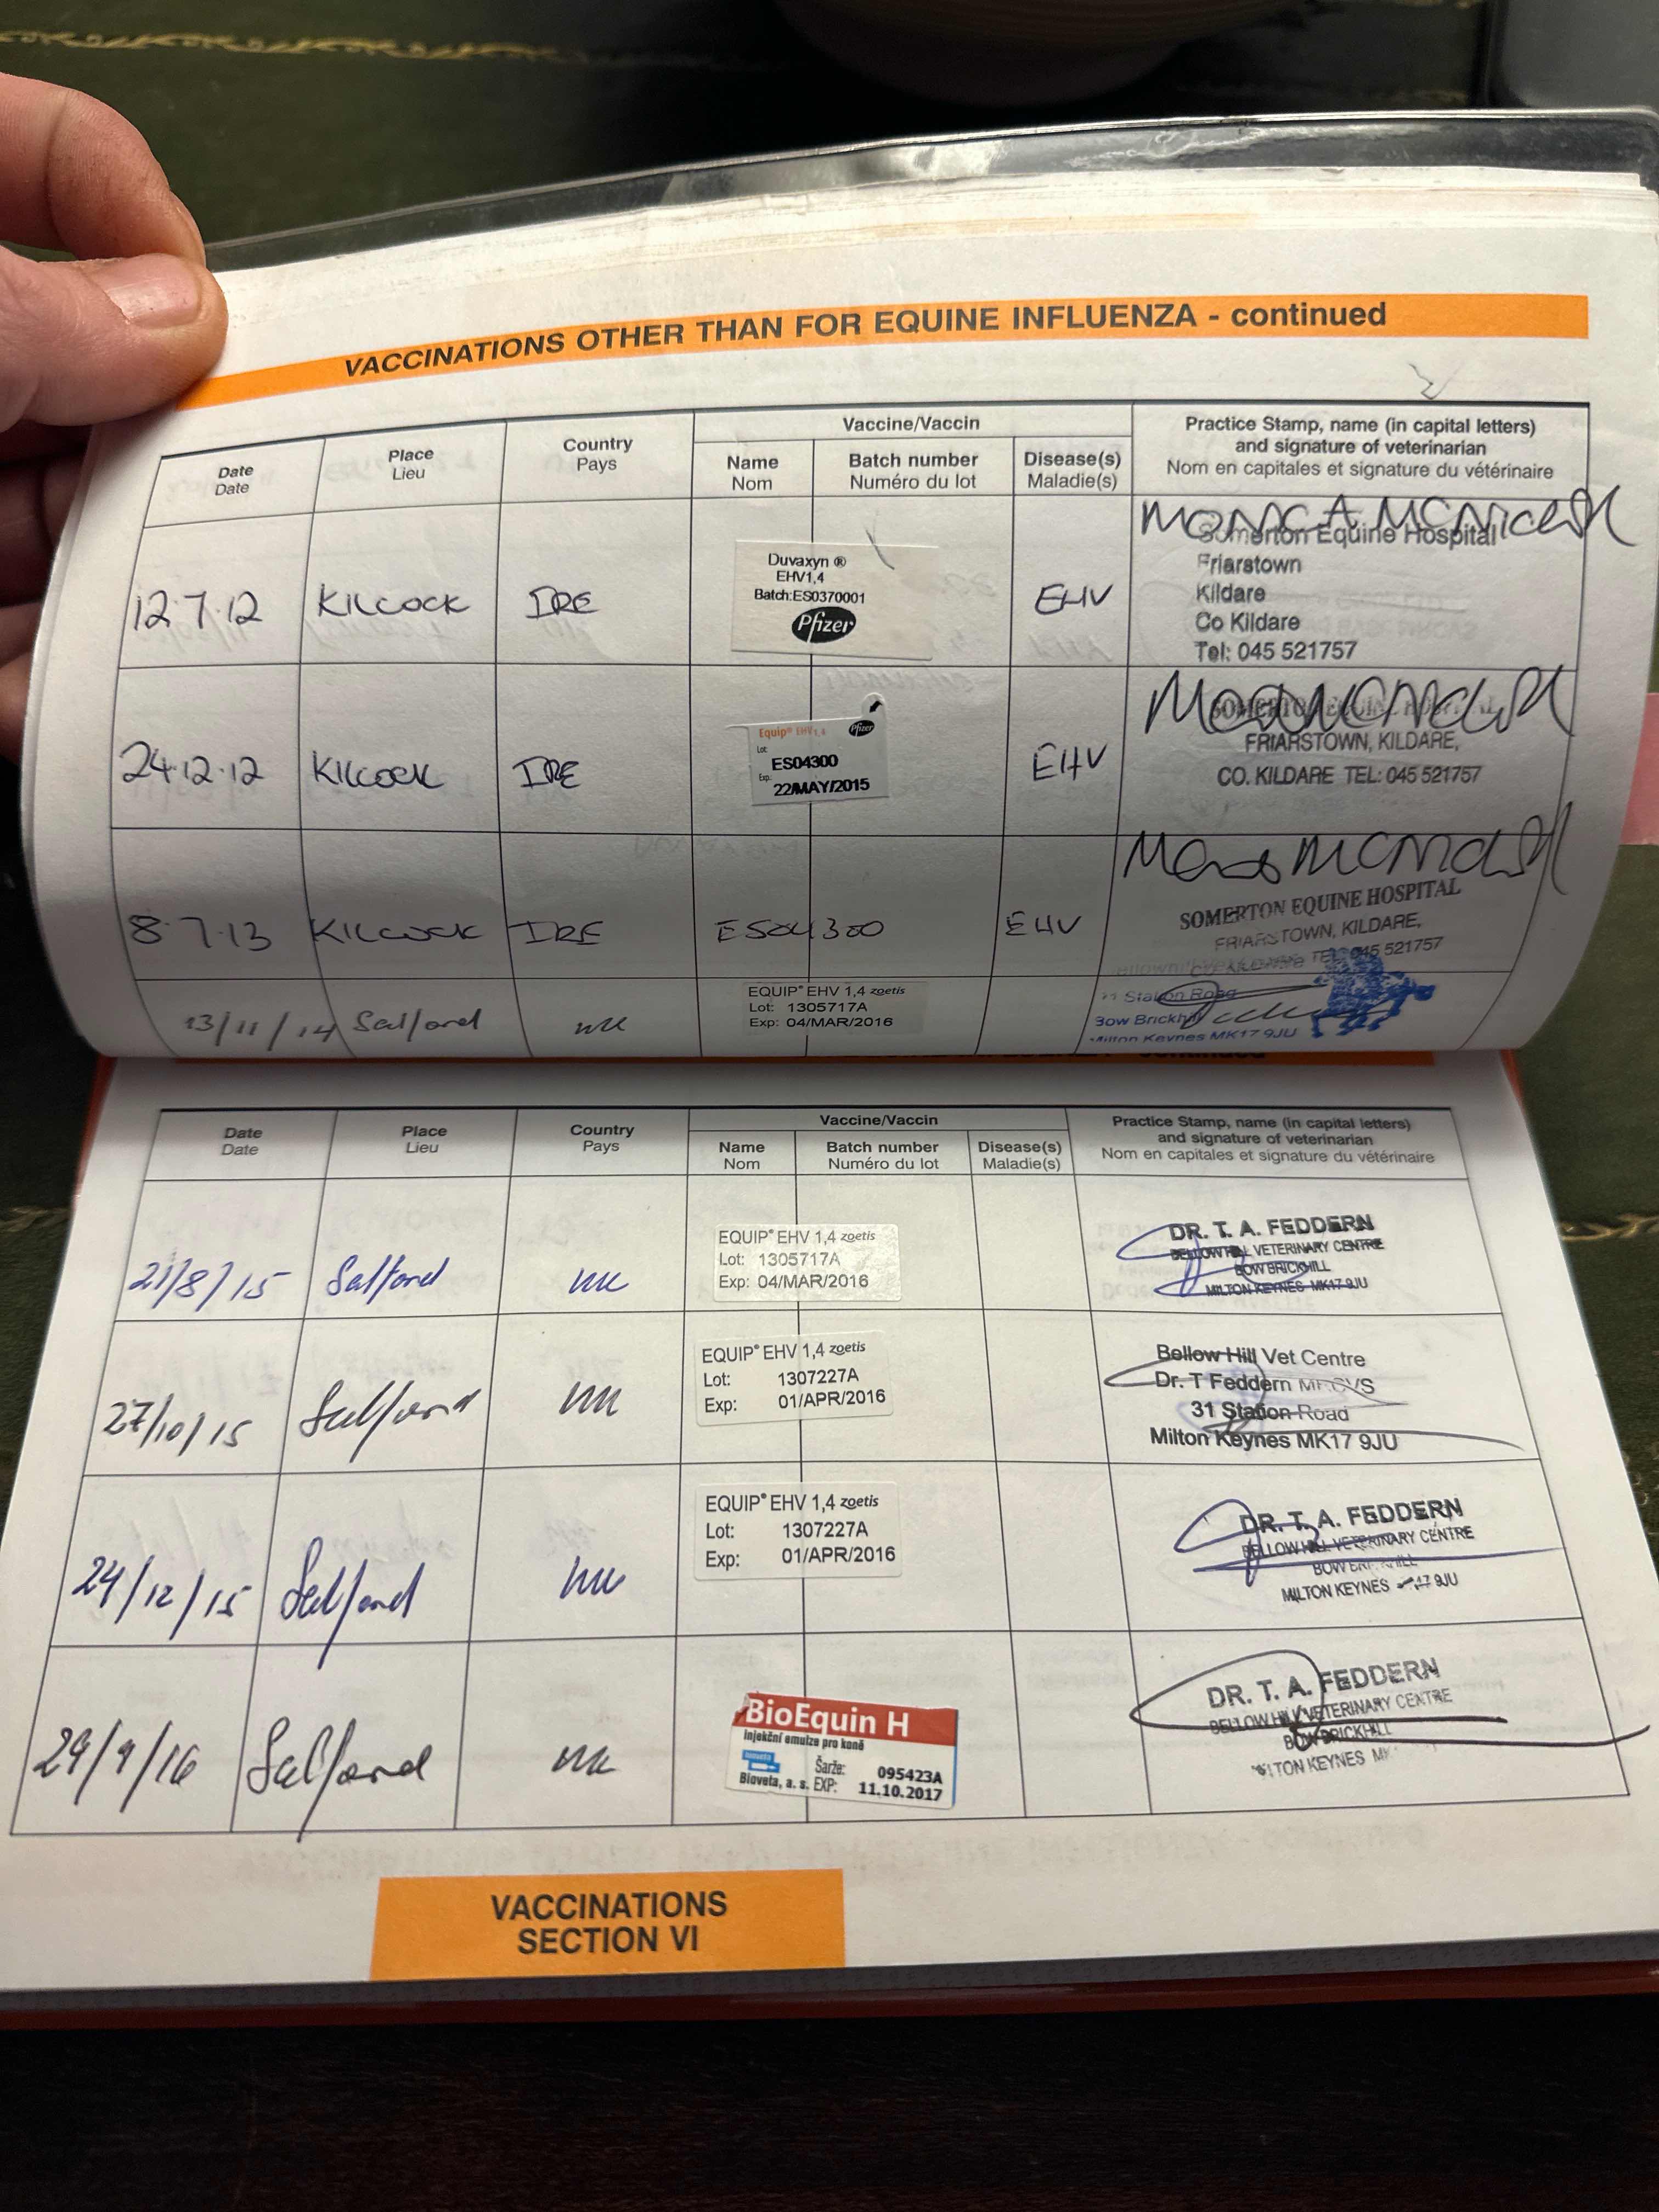 VACCINATIONS OTHER THAN FOR EQUINE INFLUENZA - continued
Date
Date
Place
Lieu
Country
Pays
Vaccine/Vaccin
Name
Nom
Batch number
Numéro du lot
Disease(s)
Maladie(s)
Practice Stamp, name (in capital letters)
and signature of veterinarian
Nom en capitales et signature du vétérinaire
12.7.12
KILCOCK
IRE
Duvaxyn ®
EHV1,4
Batch:ES0370001
Pfizer
EHV
MONICA
Somerton Equine Hospital
Friarstown
Kildare
Co Kildare
Tel: 045 521757
24.12.12
KILCOCK
IRE
Equip® EHV1,4 Pfizer
Lot:
ES04300
Exp:
22/MAY/2015
EHV
SOMERTON EQUINE HOSPITAL
FRIARSTOWN, KILDARE,
CO. KILDARE TEL: 045 521757
8.7.13
KILCOCK
IRE
ES04300
EHV
SOMERTON EQUINE HOSPITAL
FRIARSTOWN, KILDARE,
CO. KILDARE TEL: 045 521757
13/11/14
Salford
UK
EQUIP® EHV 1,4 zoetis
Lot: 1305717A
Exp: 04/MAR/2016
Station Road
Bow Brickhill
Milton Keynes MK17 9JU
Date
Date
Place
Lieu
Country
Pays
Vaccine/Vaccin
Name
Nom
Batch number
Numéro du lot
Disease(s)
Maladie(s)
Practice Stamp, name (in capital letters)
and signature of veterinarian
Nom en capitales et signature du vétérinaire
21/8/15
Salford
UK
EQUIP® EHV 1,4 zoetis
Lot: 1305717A
Exp: 04/MAR/2016
DR. T. A. FEDDERN
BELLOW HILL VETERINARY CENTRE
BOW BRICKHILL
MILTON KEYNES MK17 9JU
27/10/15
Salford
UK
EQUIP® EHV 1,4 zoetis
Lot: 1307227A
Exp: 01/APR/2016
Bellow Hill Vet Centre
Dr. T Feddern MRCVS
31 Station Road
Milton Keynes MK17 9JU
24/12/15
Salford
UK
EQUIP® EHV 1,4 zoetis
Lot: 1307227A
Exp: 01/APR/2016
DR. T. A. FEDDERN
BELLOW HILL VETERINARY CENTRE
BOW BRICKHILL
MILTON KEYNES MK17 9JU
29/9/16
Salford
UK
BioEquin H
injekční emulze pro koně
bioveta
Šarže: 095423A
Bioveta, a. s. EXP: 11.10.2017
DR. T. A. FEDDERN
BELLOW HILL VETERINARY CENTRE
BOW BRICKHILL
MILTON KEYNES
VACCINATIONS
SECTION VI